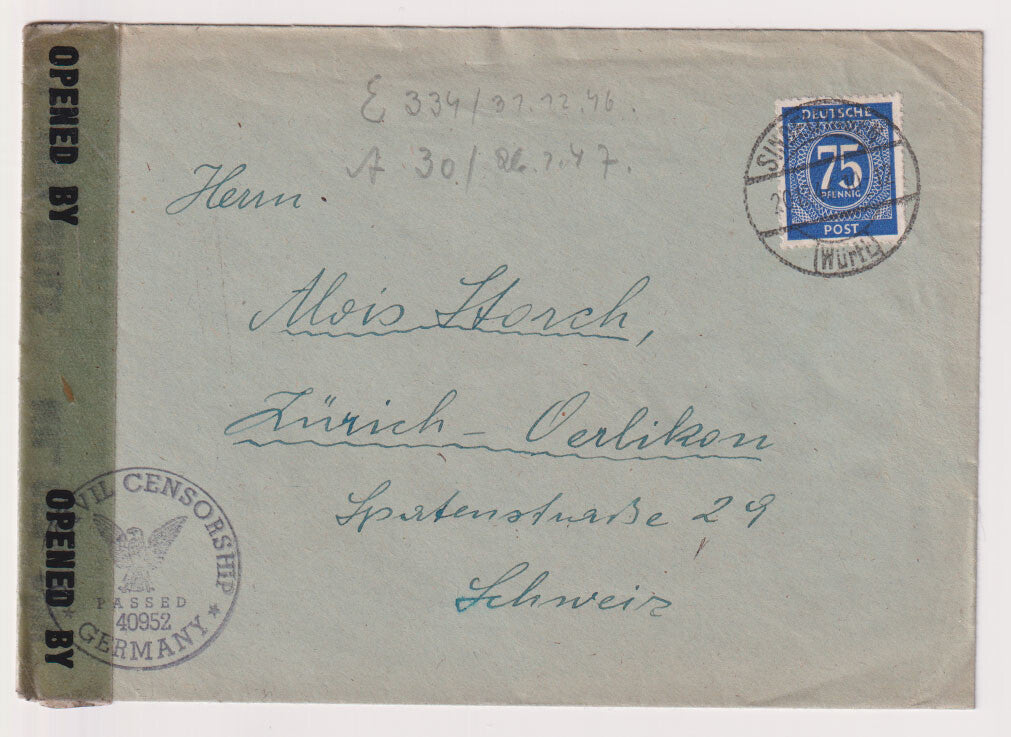 OPENED BY
E 334/31.12.46.
A 30/ 7.47.
DEUTSCHE
75
PFENNIG
POST
(Württ)
Herrn
Alois Storch,
Zürich - Oerlikon
Spatenstraße 29
Schweiz
OPENED BY
CIVIL CENSORSHIP
PASSED
40952
* GERMANY *